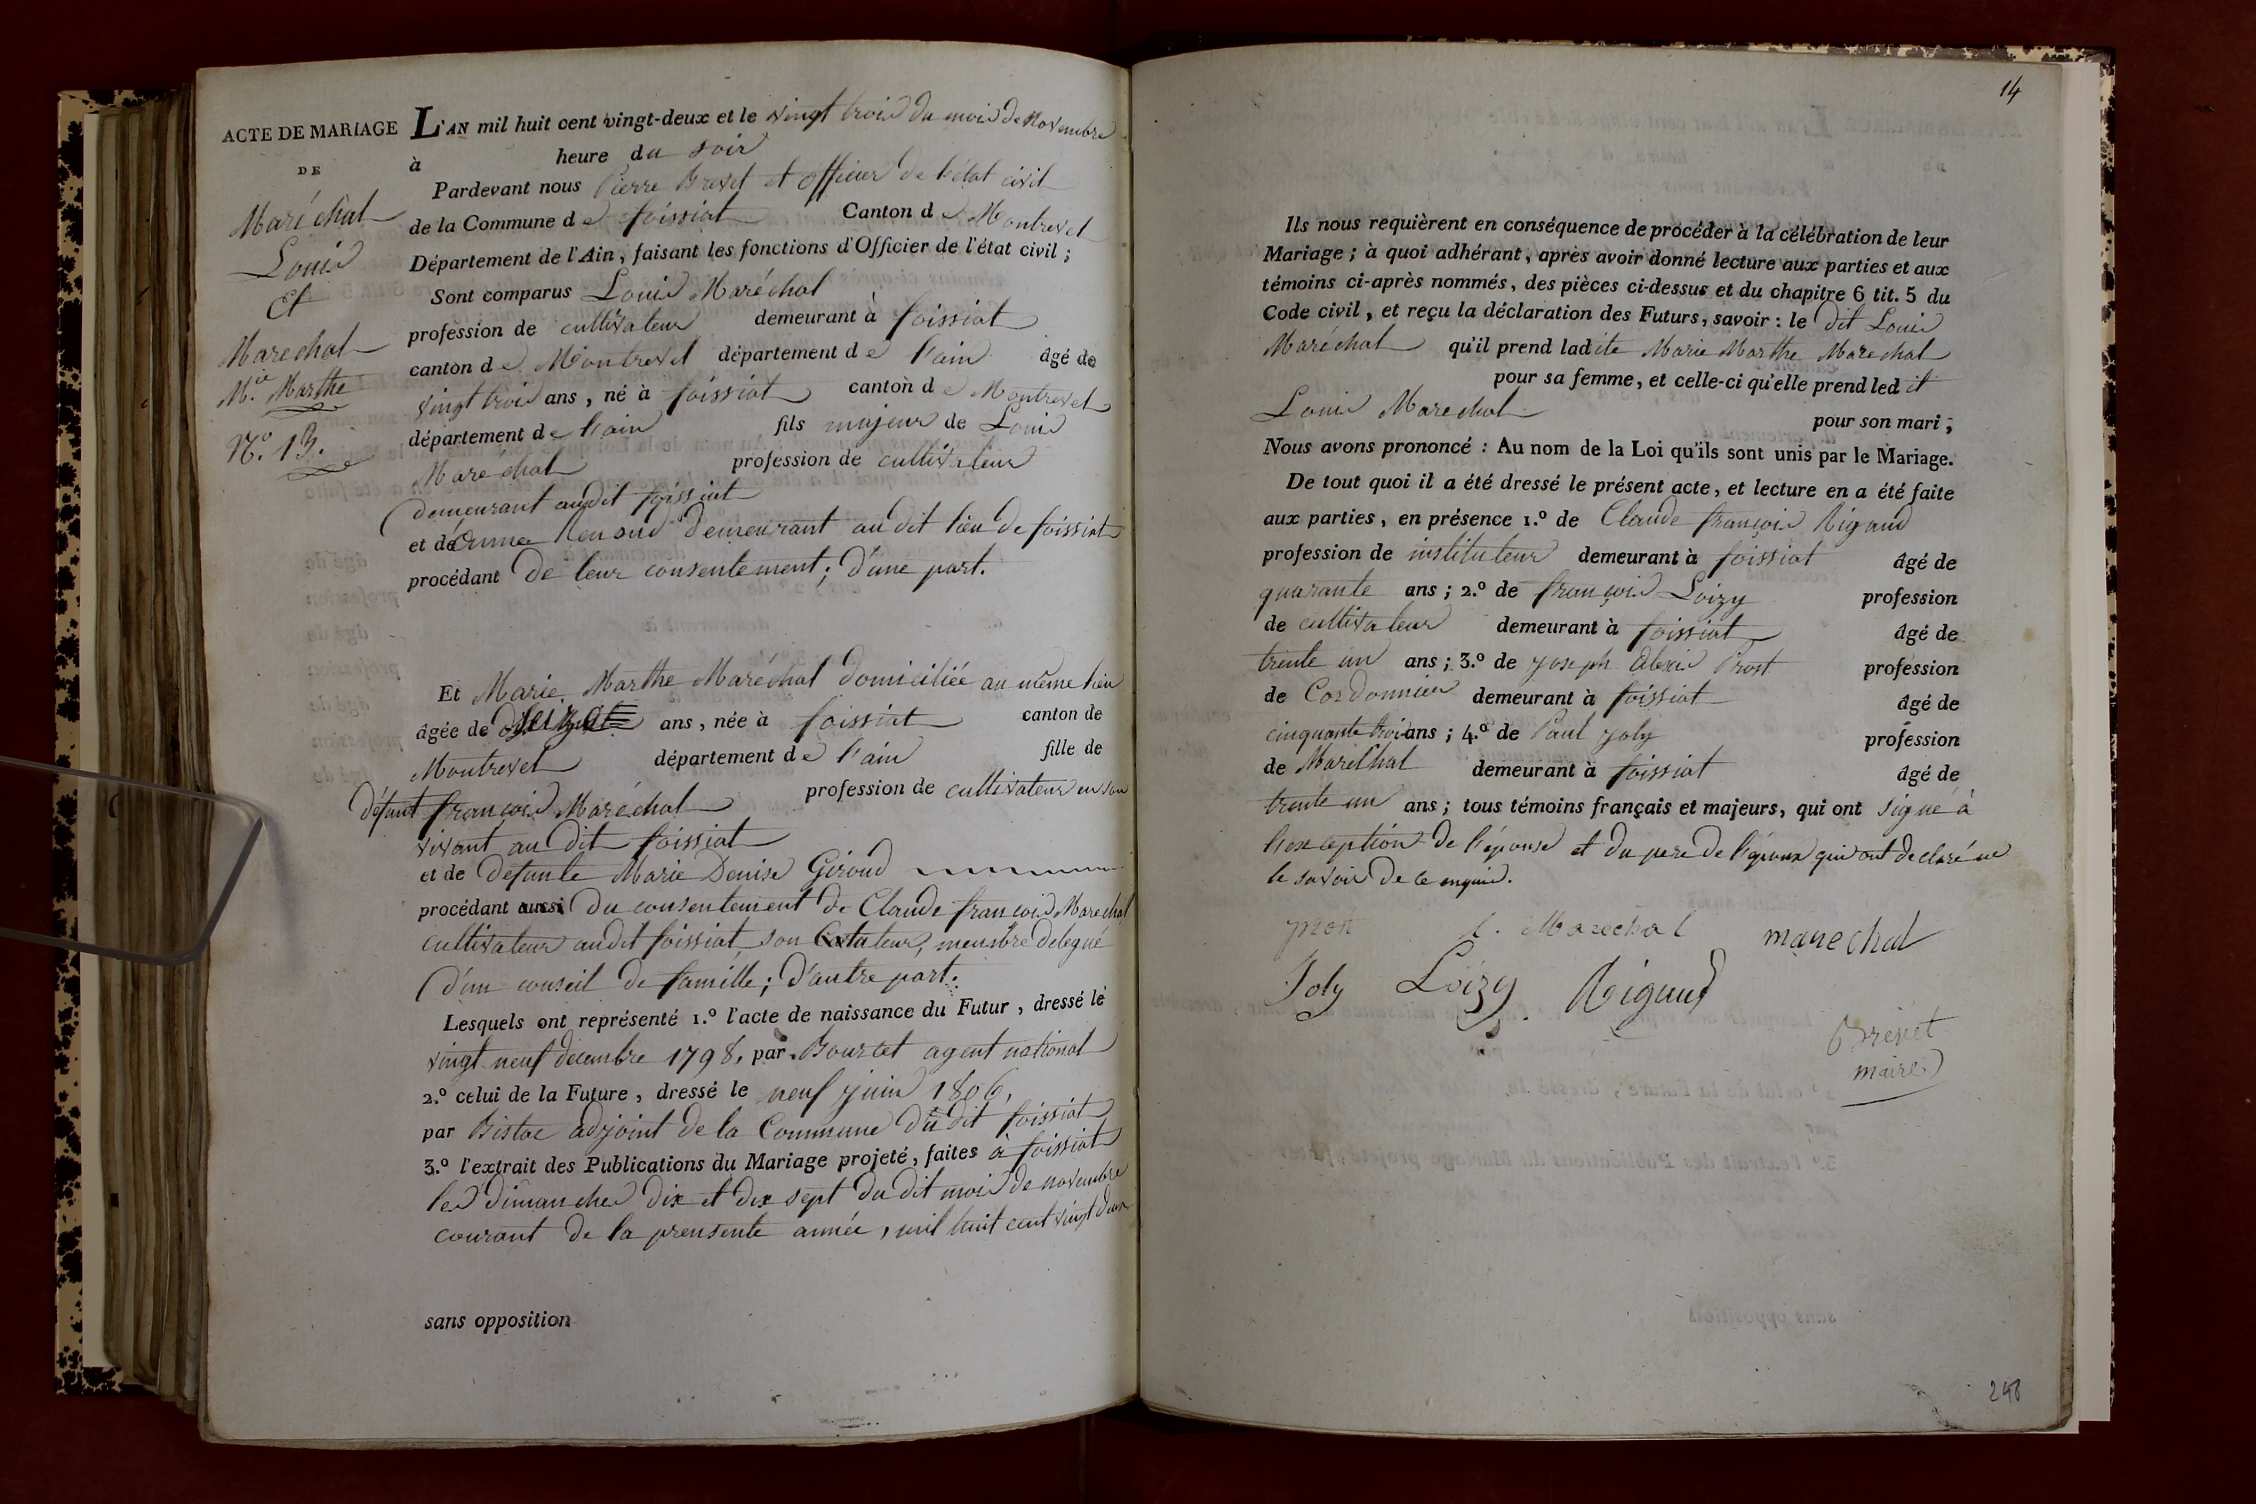 ACTE DE MARIAGE
DE
Maréchal
Louis
Et
Marechal
M.ie Marthe
N.o 13.
L'AN mil huit cent vingt-deux et le vingt trois du mois de Novembre
à heure du soir
Pardevant nous Pierre Brevet et officier de l'état civil
de la Commune de foissiat Canton de Montrevel
Département de l'Ain, faisant les fonctions d'Officier de l'état civil;
Sont comparus Louis Maréchal
profession de cultivateur demeurant à foissiat
canton de Montrevel département de l'ain âgé de
vingt trois ans, né à foissiat canton de Montrevel
département de l'ain fils majeur de Louis
Maréchal profession de cultivateur
demeurant audit foissiat
et de demeurant au dit lieu de foissiat
procédant de leur consentement; d'une part.
Et Marie Marthe Maréchal domiciliée au même lieu
âgée de seize ans, née à foissiat canton de
Montrevel département de l'ain fille de
défunt françois Maréchal profession de cultivateur en son
vivant au dit foissiat
et de defunte Marie Denise Giroud
procédant aussi du consentement de Claude françois Marechal
cultivateur audit foissiat son tuteur, membre delegué
d'un conseil de famille; d'autre part.
Lesquels ont représenté 1.o l'acte de naissance du Futur, dressé le
vingt neuf decembre 1798, par Bourcet agent national
2.o celui de la Future, dressé le neuf juin 1806,
par Bistac adjoint de la Commune du dit foissiat
3.o l'extrait des Publications du Mariage projeté, faites à foissiat
les dimanches dix et dix sept du dit mois de novembre
courant de la prensente année, mil huit cent vingt deux
sans opposition
14
Ils nous requièrent en conséquence de procéder à la célébration de leur
Mariage; à quoi adhérant, après avoir donné lecture aux parties et aux
témoins ci-après nommés, des pièces ci-dessus et du chapitre 6 tit. 5 du
Code civil, et reçu la déclaration des Futurs, savoir: le dit Louis
Maréchal qu'il prend ladite Marie Marthe Marechal
pour sa femme, et celle-ci qu'elle prend ledit
Louis Marechal pour son mari;
Nous avons prononcé: Au nom de la Loi qu'ils sont unis par le Mariage.
De tout quoi il a été dressé le présent acte, et lecture en a été faite
aux parties, en présence 1.o de Claude françois Rigaud
profession de instituteur demeurant à foissiat âgé de
quarante ans; 2.o de françois Loizy profession
de cultivateur demeurant à foissiat âgé de
trente un ans; 3.o de joseph alexis Prost profession
de Cordonnier demeurant à foissiat âgé de
cinquante trois ans; 4.o de Paul joly profession
de Maréchal demeurant à foissiat âgé de
trente un ans; tous témoins français et majeurs, qui ont signé à
l'exception de l'épouse et du pere de l'epoux qui ont declaré ne
le savoir de ce enquis.
l. Marechal marechal
Joly Loizy Rigaud
Brevet
maire
248